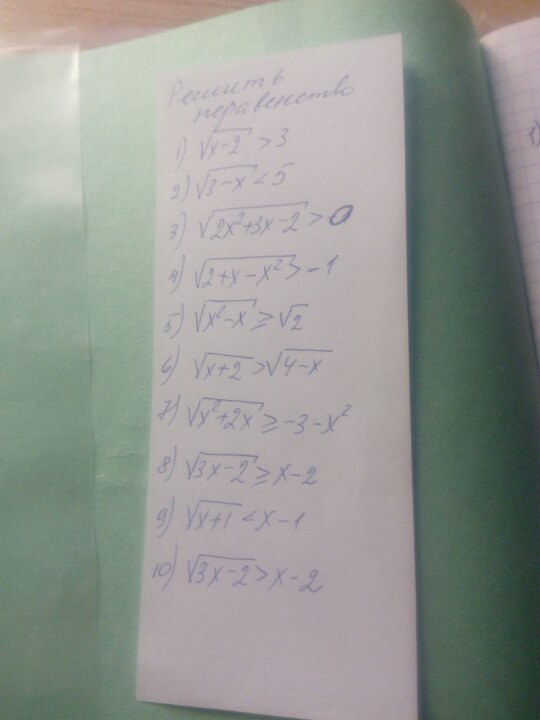 Решить
неравенство
1) √x-2 > 3
2) √3-x < 5
3) √2x²+3x-2 > 0
4) √2+x-x² > -1
5) √x²-x ≥ √2
6) √x+2 > √4-x
7) √x²+2x ≥ -3-x²
8) √3x-2 ≥ x-2
9) √x+1 < x-1
10) √3x-2 > x-2